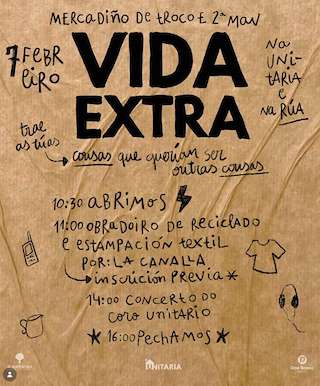 MERCADIÑO DE TROCO E 2ª MAN
7 FEBR
EIRO
VIDA
EXTRA
NA
UNI-
TARIA
E
NA RÚA
trae
as túas
cousas que querían ser
outras cousas
10:30 ABRIMOS
11:00 OBRADOIRO DE RECICLADO
E ESTAMPACIÓN TEXTIL
POR: LA CANALLA
inscrición previa *
14:00 CONCERTO DO
CORO UNITARIO
* 16:00 PECHAMOS *
UNITARIA